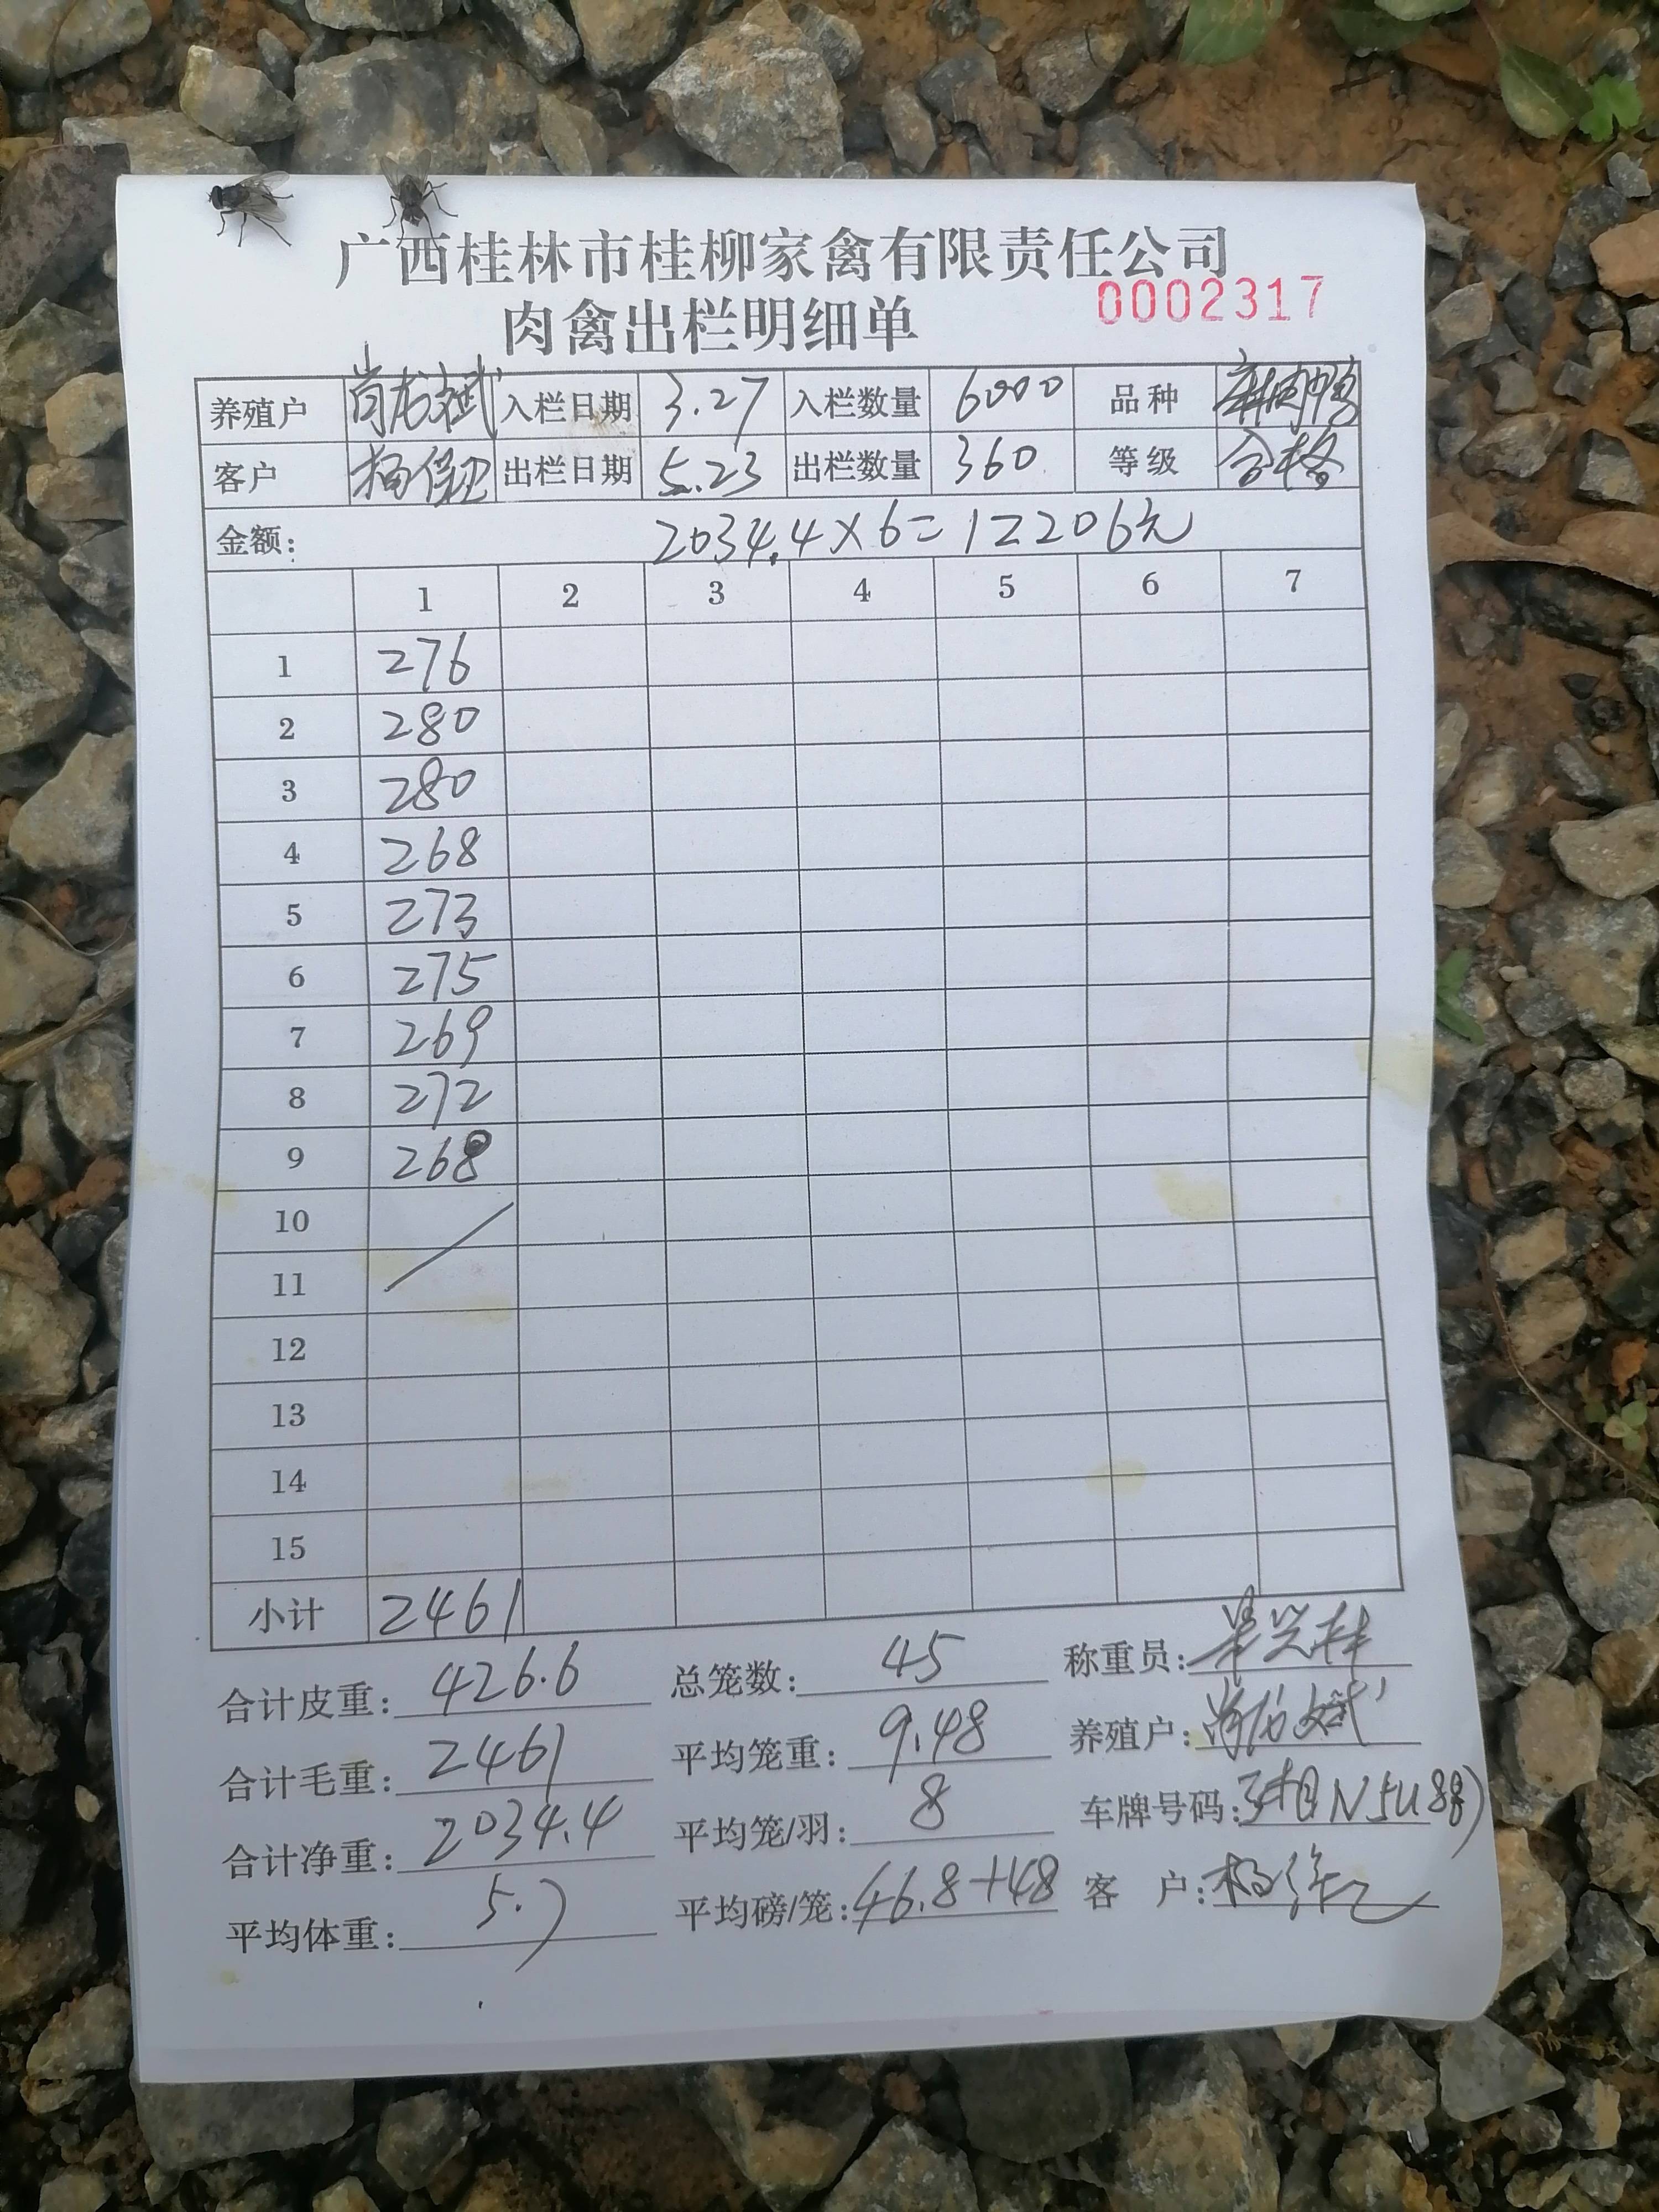 广西桂林市桂柳家禽有限责任公司
肉禽出栏明细单 0002317
养殖户 尚龙斌 入栏日期 3.27 入栏数量 6000 品种
客户 出栏日期 5.23 出栏数量 360 等级 合格
金额: 2034.4×6=12206元
1 2 3 4 5 6 7
1 276
2 280
3 280
4 268
5 273
6 275
7 269
8 272
9 268
10
11
12
13
14
15
小计 2461
合计皮重: 426.6 总笼数: 45 称重员:
合计毛重: 2461 平均笼重: 9.48 养殖户: 尚龙斌
合计净重: 2034.4 平均笼/羽: 8 车牌号码:
平均体重: 5.7 平均磅/笼: 46.8+48 客 户: